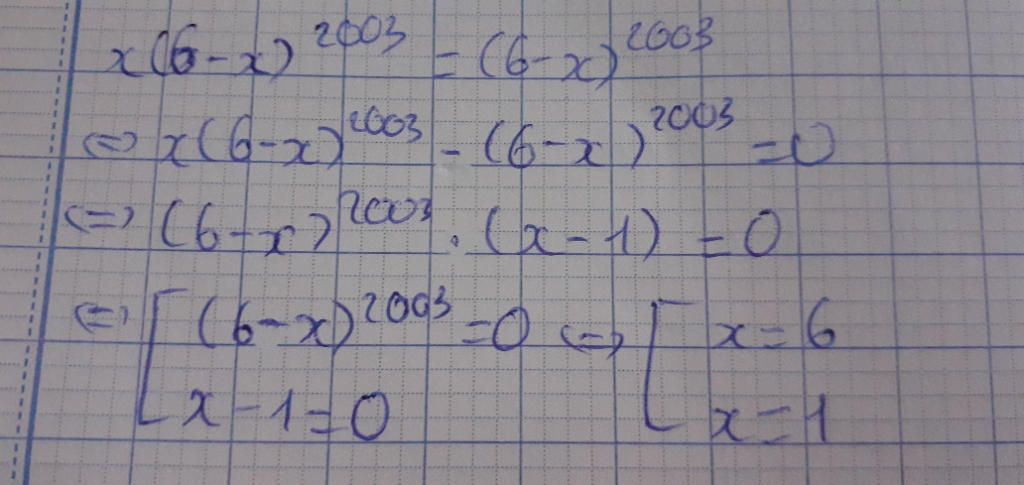 x(6-x)^2003 = (6-x)^2003
⇔ x(6-x)^2003 - (6-x)^2003 = 0
⇔ (6-x)^2003 . (x-1) = 0
⇔ [ (6-x)^2003 = 0 ⇔ [ x = 6
x - 1 = 0 x = 1